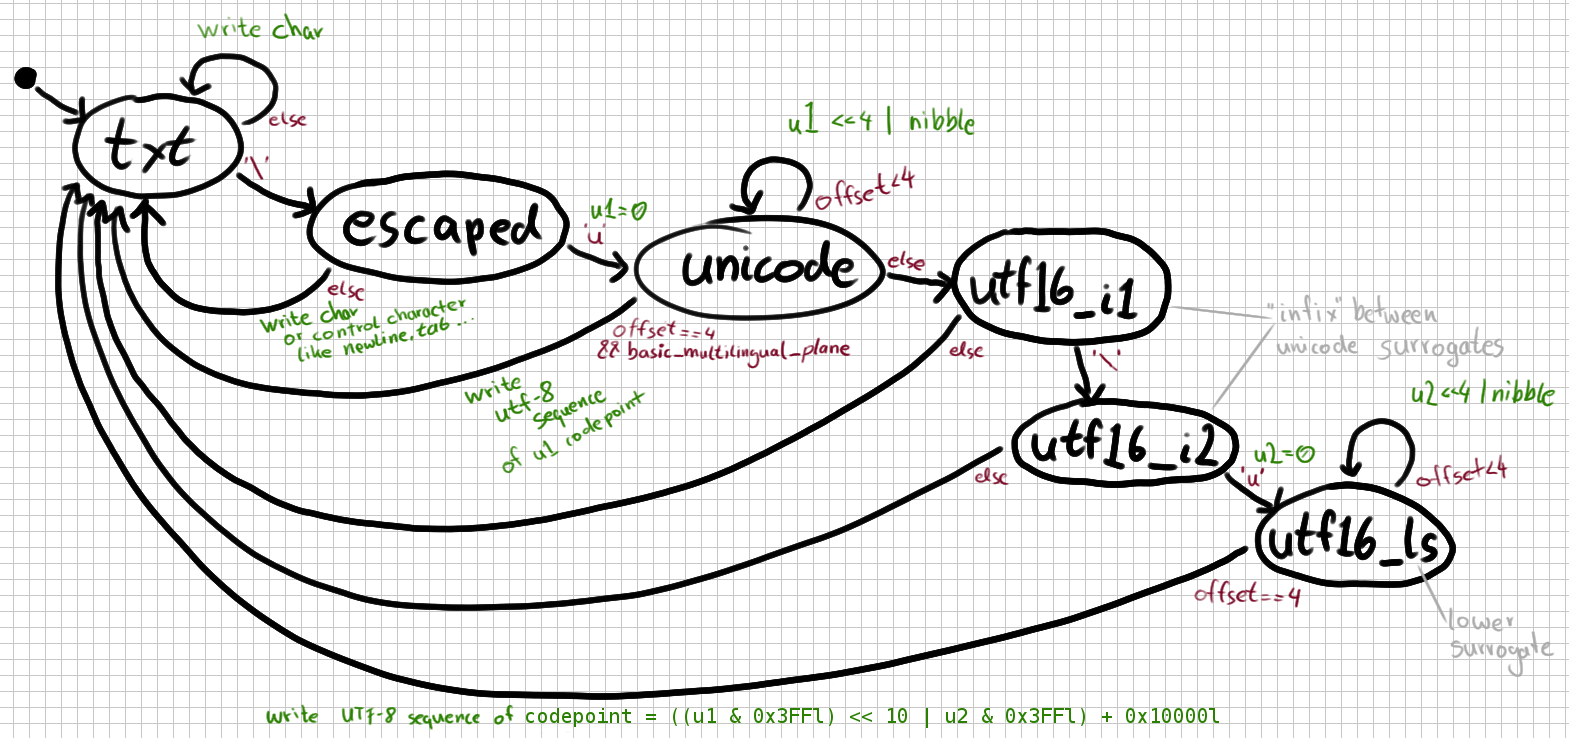 write char
txt
else
'\'
escaped
u1=0
'u'
else
write char
or control character
like newline, tab ...
u1 <<4 | nibble
offset<4
unicode
else
offset==4
&& basic_multilingual_plane
write
utf-8
sequence
of u1 codepoint
utf16_i1
else
'\'
"infix" between
unicode surrogates
utf16_i2
else
u2=0
'u'
u2<<4 | nibble
offset<4
utf16_ls
offset==4
lower
surrogate
write UTF-8 sequence of codepoint = ((u1 & 0x3FFl) << 10 | u2 & 0x3FFl) + 0x10000l